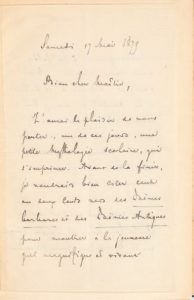 Samedi 17 Mai 1879
Mon cher Maître,
J'aurai le plaisir de vous
porter, un de ces jours, une
petite Mythologie scolaire, qui
s'imprime. Avant de la finir,
je voudrais bien citer cent
ou deux cents vers des Poèmes
barbares et des Poèmes Antiques
pour montrer à la jeunesse
quel magnifique et vivant